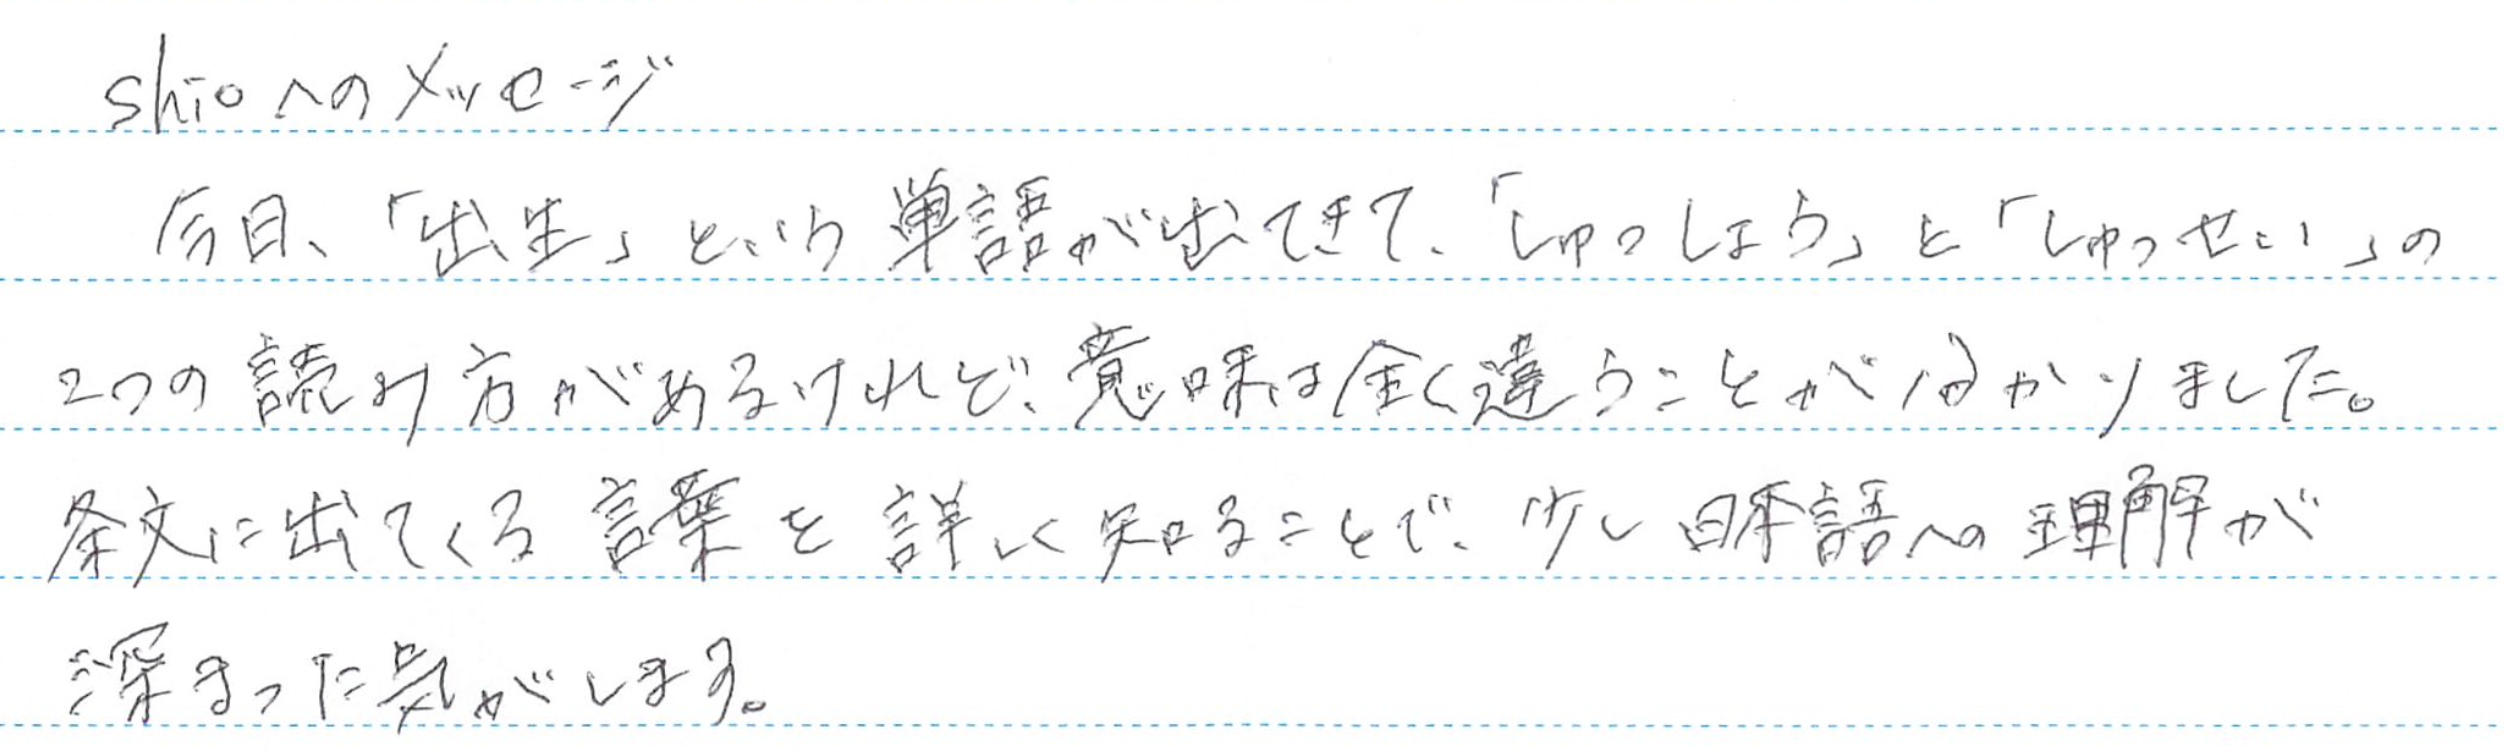 shioへのメッセージ
今日、「出生」という単語が出てきて、「しゅっしょう」と「しゅっせい」の
2つの読み方があるけれど、意味は全く違うことが分かりました。
条文に出てくる言葉を詳しく知ることで、少し日本語への理解が
深まった気がします。